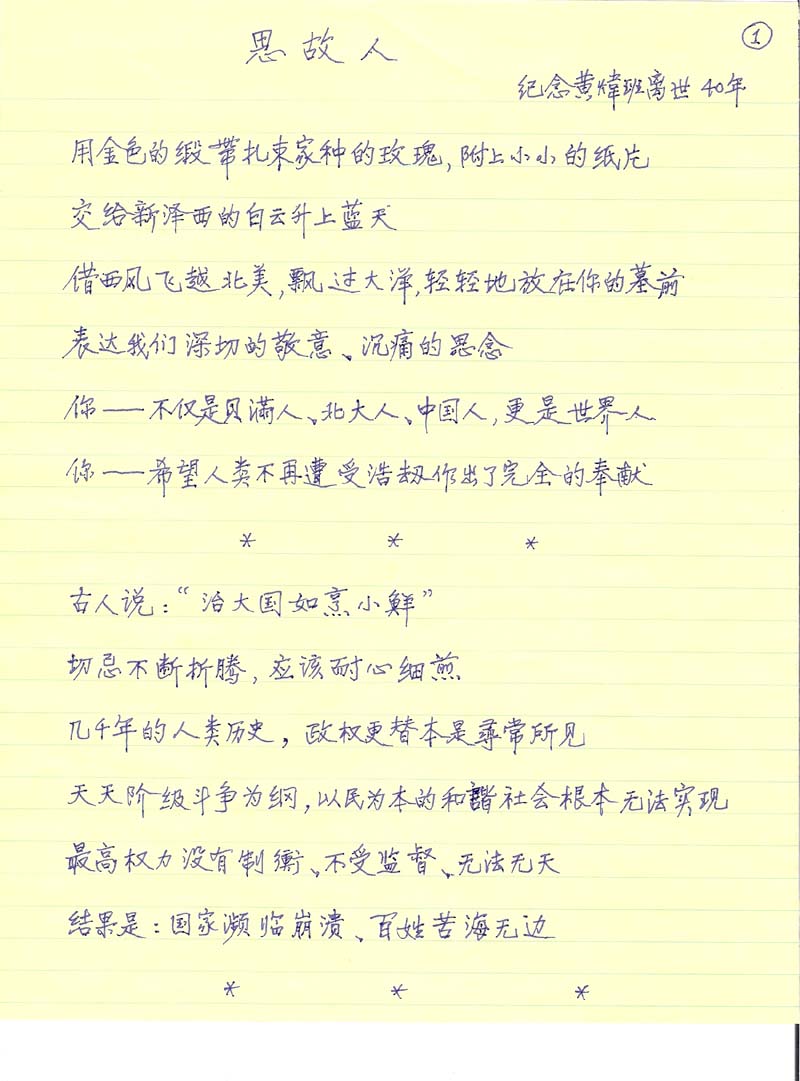 ①
思故人
纪念黄炜班离世40年
用金色的缎带扎束家种的玫瑰,附上小小的纸片
交给新泽西的白云升上蓝天
借西风飞越北美,飘过大洋,轻轻地放在你的墓前
表达我们深切的敬意、沉痛的思念
你——不仅是贝满人、北大人、中国人,更是世界人
你——希望人类不再遭受浩劫作出了完全的奉献
* * *
古人说:“治大国如烹小鲜”
切忌不断折腾,应该耐心细煎
几千年的人类历史,政权更替本是寻常所见
天天阶级斗争为纲,以民为本的和谐社会根本无法实现
最高权力没有制衡、不受监督、无法无天
结果是:国家濒临崩溃、百姓苦海无边
* * *